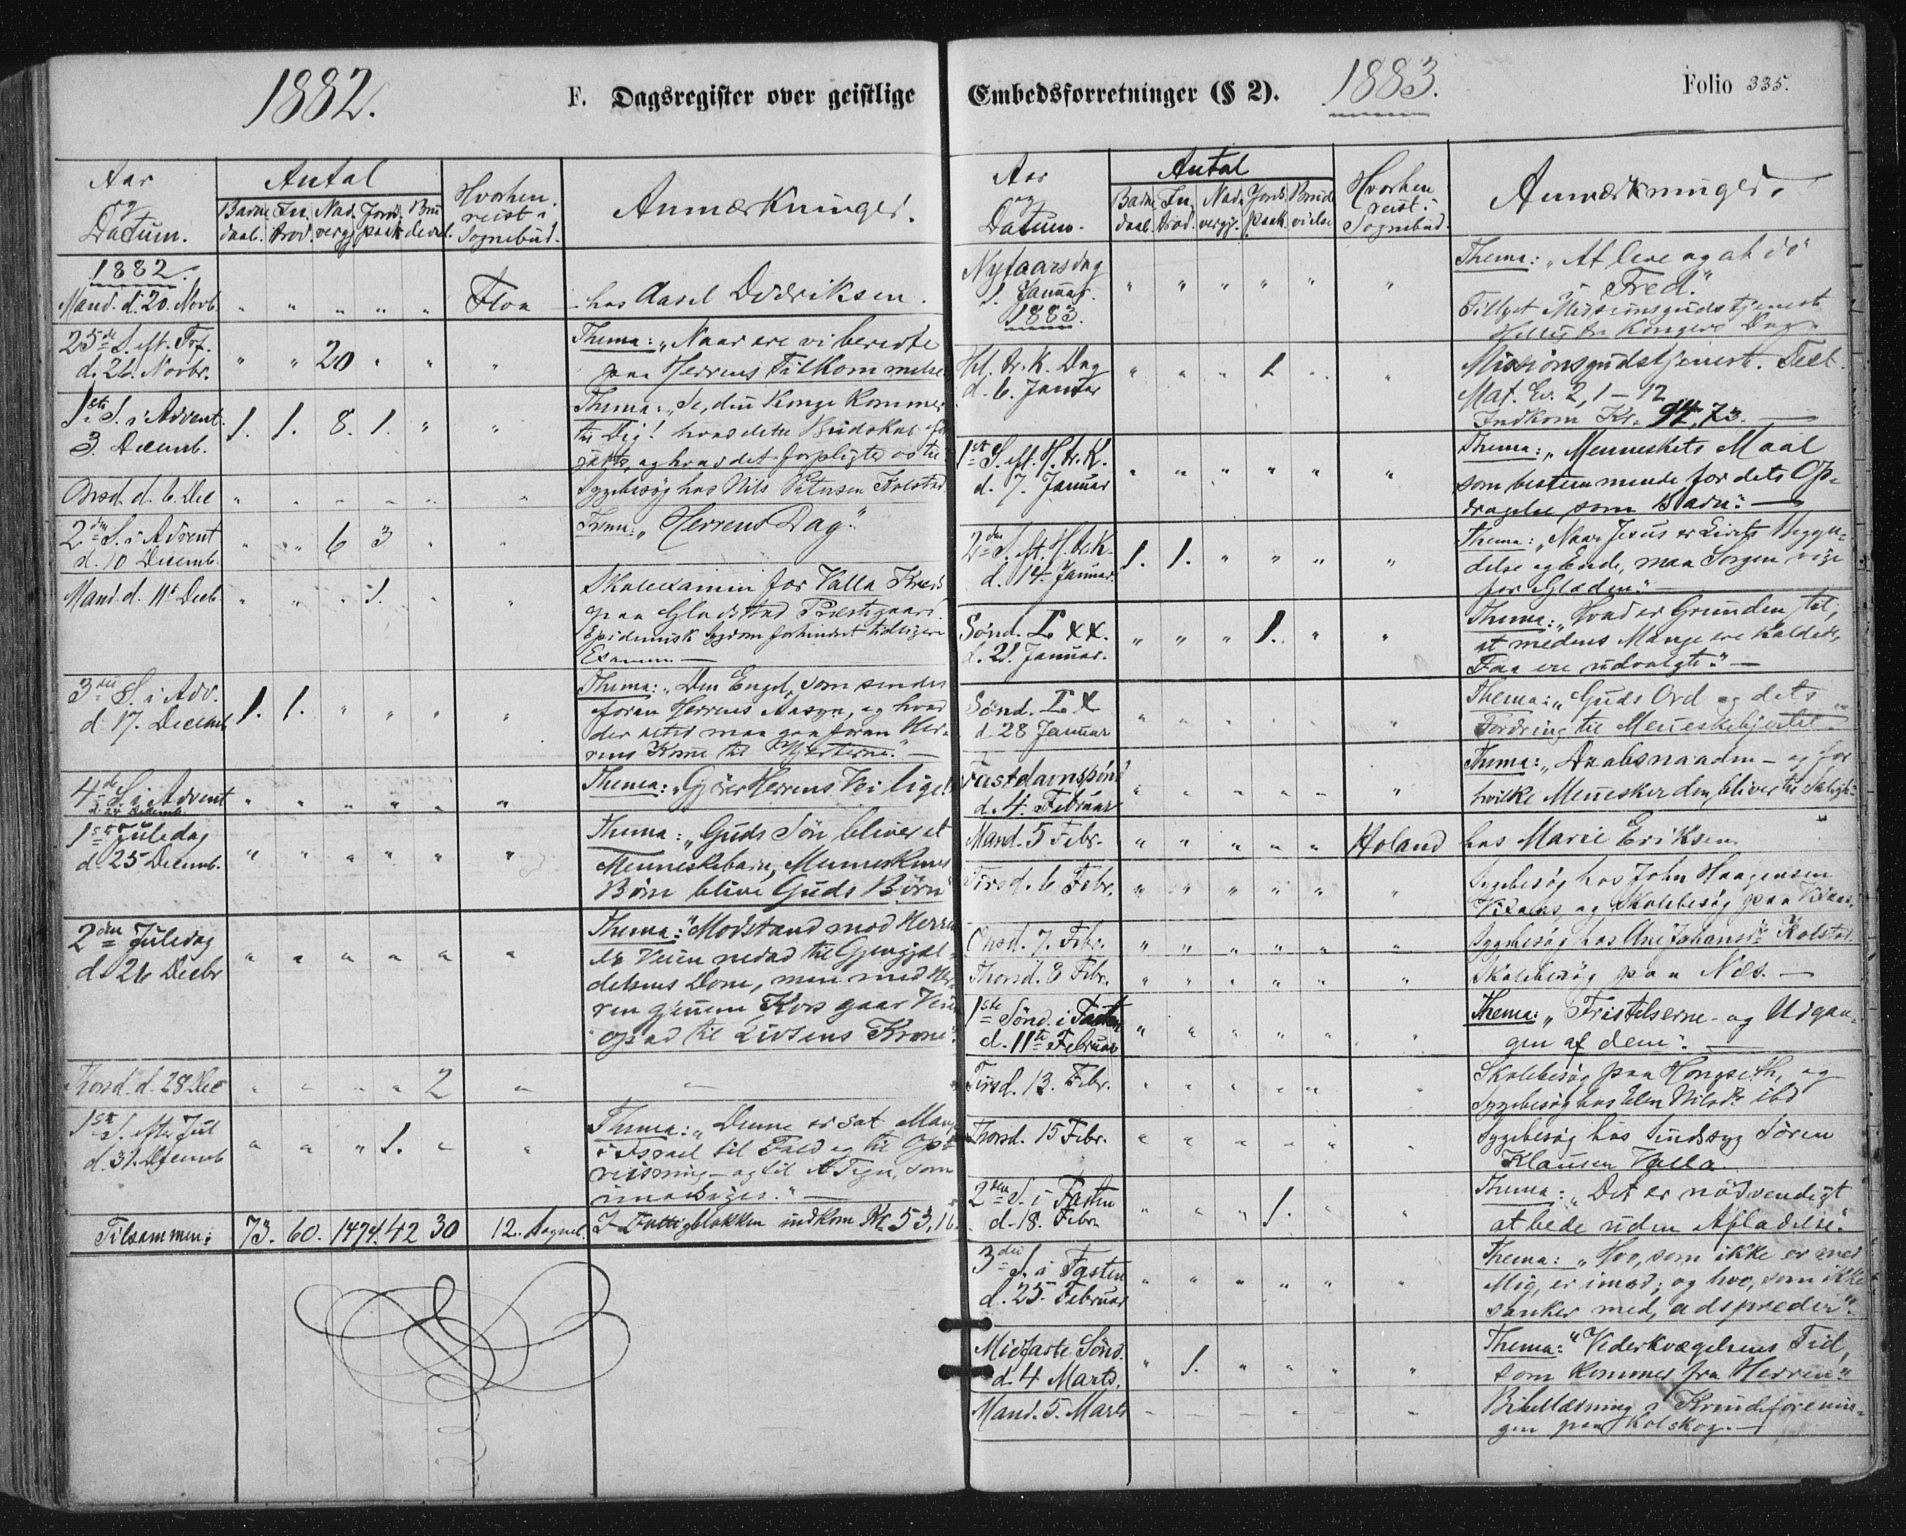 1882.
F. Dagsregister over geistlige
Aar
og
Datum.
Antal
Barne
daab.
In
trod.
Nad
vergj.
Jords
paak.
Bru
devi.
Hvorhen
reist i
Sognebud.
Anmærkninger.
1882.
Mand. d. 20. Novb. " " " " " Floa hos Aasel Didriksen.
25de S. eft. Tref.
d. 26. Novbr. " " 20 " " "
Thema: "Naar ere vi beredte
paa Herrens Tilkommelse
1ste S. i Advent
3. Decemb. 1. 1. 8. 1. " "
Thema: "Se, din Konge kommer
til Dig! hvad dette Budskab
og hvad det forpligter os til
Onsd. d. 6 Dec " " " " " "
Sygebesøg hos Nils Petersen Kolstad
2den S. i Advent
d. 10 Decemb. " " 6 3 " "
Thema: "Herrens Dag".
Mand. d. 11te Decb " " " 1. " "
Skoleexamen for Valla Kreds
paa Gladstad Præstgaard.
Epidemisk Sygdom forhindret tidligere
Examen. —
3die S. i Adv.
d. 17. Decemb 1. 1. " " " "
Thema: "Den Engel, som sendes
foran Herrens Aasyn, og hvad
der altid maa gaa foran Her-
rens Komme til Hjerterne." —
4de S. i Advent
d. 24 Decemb " " " " " "
Thema: "Gjører Herrens Vei lige
1ste Juledag
d. 25 Decemb. " " " " " "
Thema: "Guds Søn bliver et
Menneskebarn, Menneskenes
Børn blive Guds Børn
2den Juledag
d. 26 Decbr " " " " " "
Thema: "Modstand mod Herren
er Veien nedad til Gjengjæl-
delsens Dom, men med Her-
ren gjennem Kors gaar Veien
opad til Livsens Krone".
Thorsd. d. 28 Dec " " " " 2 " "
1ste S. efter Jul
d. 31. Decemb " " " 1. " "
Thema: "Denne er sat Mange
i Israel til Fald og til Op-
reisning — og til et Tegn, som
imodsiges." —
Tilsammen: 73. 60. 1474. 42 30 12. Sogneb.
I Fattigblokken indkom Kr. 53,16
Embedsforretninger (§ 2).
1883.
Folio 335.
Aar
og
Datum.
Antal
Barne
daab.
In
trod.
Nad
vergj.
Jords
paak.
Brude
vielse
Hvorhen
reist i
Sognebud.
Anmærkninger.
Nytaarsdag
1. Januar.
1883. " " " " " "
Thema: "At leve og at dø
i Fred."
Tillyst Missionsgudstjeneste
Hellig tre Kongers Dag.
Hel. tr. K. Dag
d. 6. Januar " " " 1. " "
Missionsgudstjenest. Text
Mat. Ev. 2, 1-12
Indkom Kr. 94,73. —
1ste S. eft. H. tr. K.
d. 7. Januar " " " " " "
Thema: "Menneskets Maal
som bestemmende for dets Op-
dragelse som Barn." —
2den S. eft. H. tr. K.
d. 14. Januar. 1. 1. " " " "
Thema: "Naar Jesus er Livets Begyn-
delse og Ende, maa Sorgen vige
for Glæden." —
Sønd. LXX.
d. 21. Januar. " " " 1. " "
Thema: "Hvad er Grunden til,
at medens Mange ere kaldede,
Faa ere udvalgte." —
Sønd. LX
d. 28 Januar " " " " " "
Thema: "Guds Ord og dets
Fordring til Menneskehjertet".
Fastelavnssønd
d. 4. Februar " " " " " "
Thema: "Daabsnaaden - og for
hvilke Mennesker den bliver til Salighd
Mand. 5 Febr. " " " " " Holand hos Marie Eriksen.
Tirsd. 6 Febr. " " " " " "
Sygebesøg hos John Haagensen
og Skolebesøg paa
Onsd. 7. Febr. " " " " " "
Sygebesøg hos Ane Johansdr. Kolstad.
Thorsd. 8 Febr. " " " " " "
Skolebesøg paa Næs. —
1ste Sønd. i Fasten
d. 11te Februar " " " " " "
Thema: "Fristelserne - og Udgan-
gen af dem". —
Tirsd. 13. Febr. " " " " " "
Skolebesøg paa Hongseth, og
Sygebesøg hos Elen Nilsdr. ibd
Thorsd. 15 Febr. " " " " " "
Sygebesøg hos Sindssyg Søren
Klausen Valla.
2den S. i Fasten
d. 18. Febr. " " " 1. " "
Thema: "Det er nødvendigt
at bede uden Afladelse".
3die S. i Fasten
d. 25. Februar " " " " " "
Thema: "Hvo, som ikke er med
Mig, er imod; og hvo, som ikke
sanker med, adspreder".
Midfaste Sønd.
d. 4 Marts. " 1. " " " "
Thema: "Vederkvægelsens Tid,
som kommer fra Herren."
Mand. 5. Marts " " " " " "
Bibellæsning i Kvindeforenin-
gen paa Kolskog. —